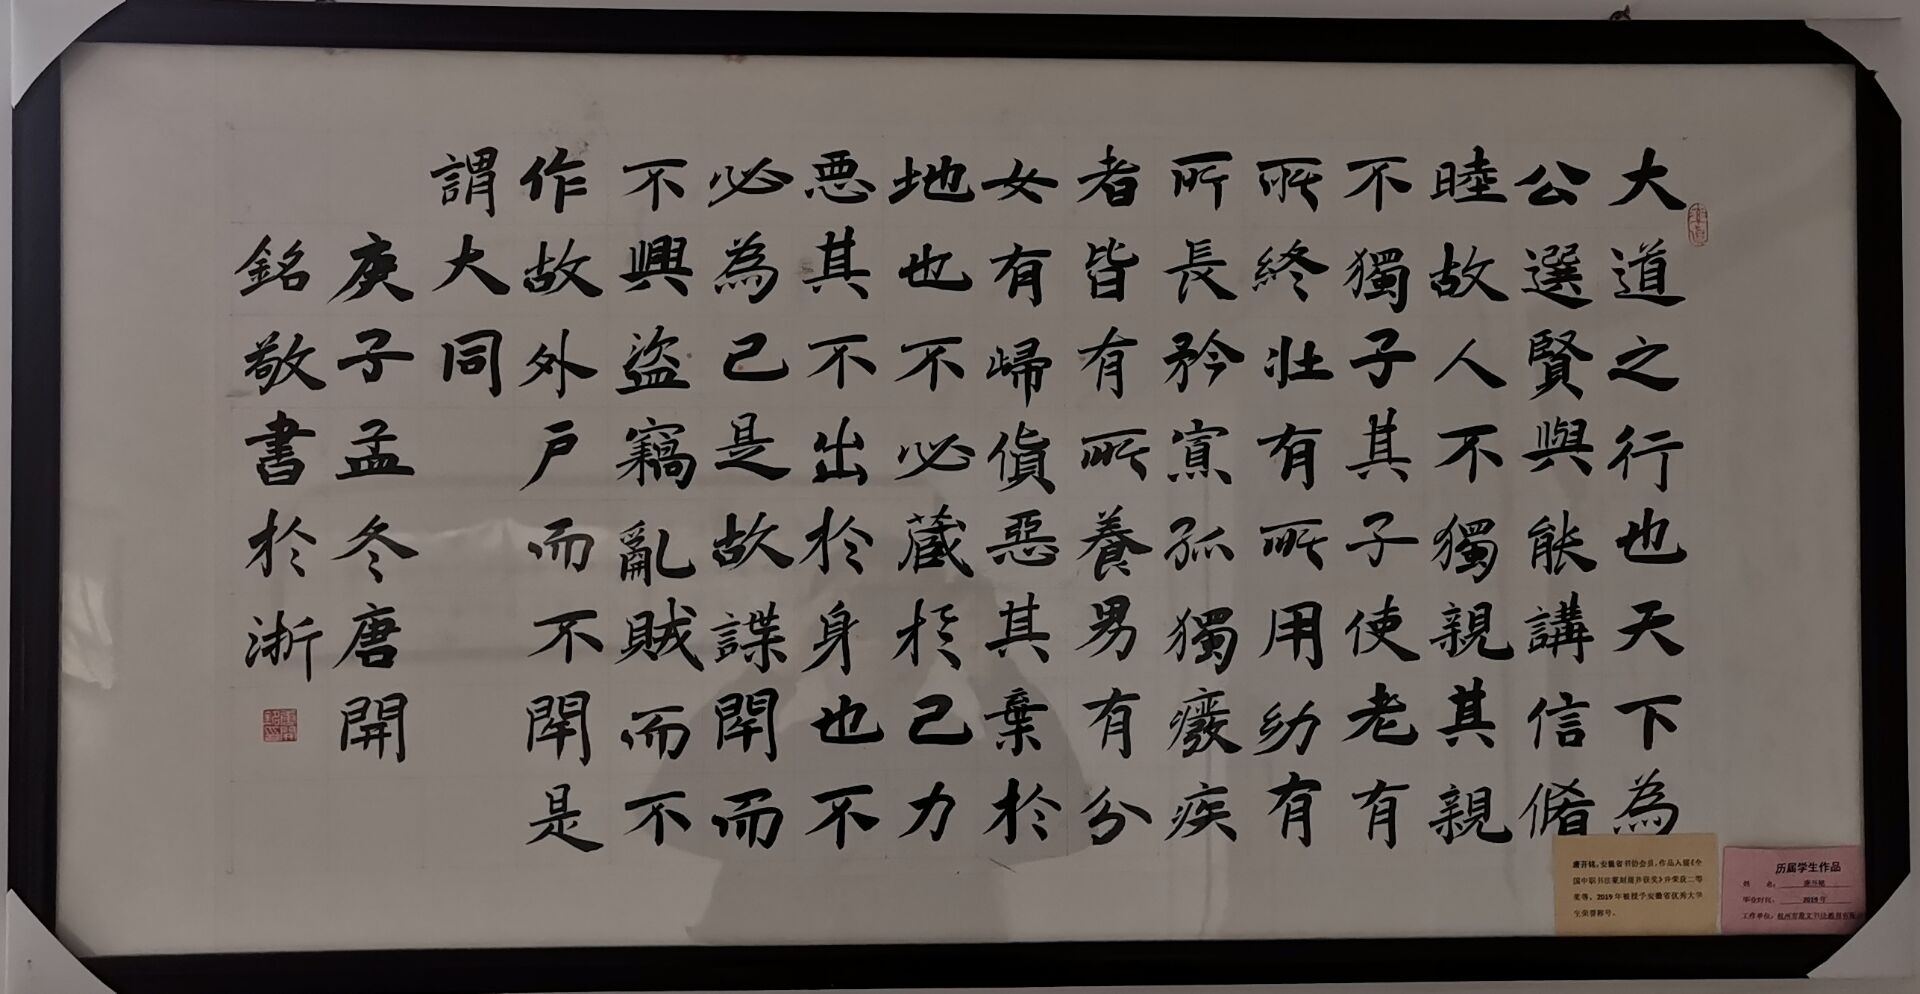 大道之行也天下為
公選賢與能講信脩
睦故人不獨親其親
不獨子其子使老有
所終壯有所用幼有
所長矜寡孤獨癈疾
者皆有所養男有分
女有歸貨惡其棄於
地也不必藏於己力
惡其不出於身也不
必為己是故謀閉而
不興盜竊亂賊而不
作故外户而不閉是
謂大同
庚子孟冬唐開
銘敬書於浙
唐开铭，安徽省书协会员，作品入展《全
国中职书法篆刻展并获奖》并荣获二等
奖等，2019年被授予安徽省优秀大学
生荣誉称号。
历届学生作品
姓 名：唐开铭
毕业时间：2019年
工作单位：杭州